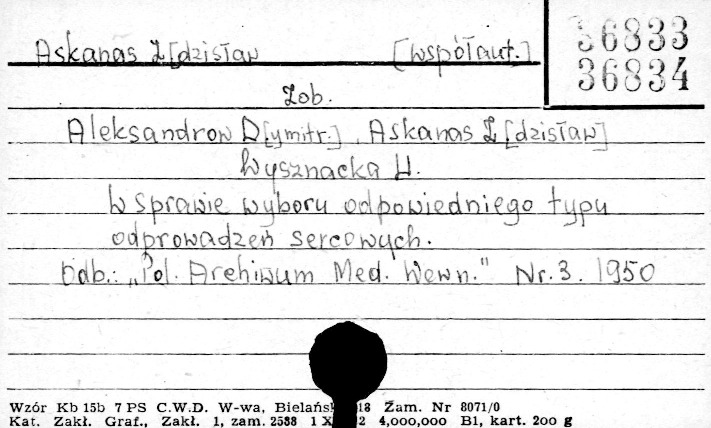 Askanas Z[dzisław [współaut.]
36833
36834
Zob.
Aleksandrow D[ymitr.], Askanas Z[dzisław]
Wysznacka H.
W sprawie wyboru odpowiedniego typu
odprowadzeń sercowych.
Odb.: „Pol. Archiwum Med. Wewn." Nr. 3. 1950
Wzór Kb 15b 7 PS C.W.D. W-wa, 18 Zam. Nr 8071/0
Kat. Zakł. Graf., Zakł. 1, zam. 2588 1 4,000,000 B1, kart. 200 g